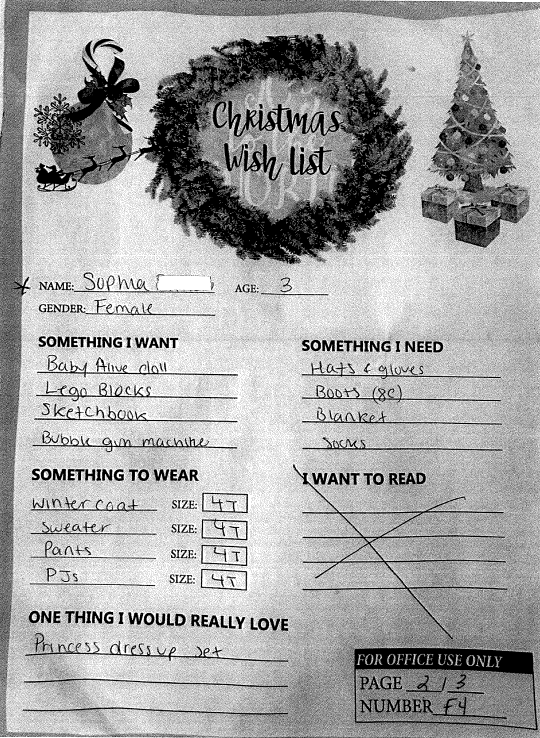 Christmas
Wish list
NAME: Sophia AGE: 3
GENDER: Female
SOMETHING I WANT
Baby Alive doll
Lego Blocks
Sketchbook
Bubble gun machine
SOMETHING I NEED
Hats & gloves
Boots (8C)
Blanket
Socks
SOMETHING TO WEAR
Winter coat SIZE: 4T
Sweater SIZE: 4T
Pants SIZE: 4T
PJs SIZE: 4T
I WANT TO READ
ONE THING I WOULD REALLY LOVE
Princess dress up set
FOR OFFICE USE ONLY
PAGE 2 / 3
NUMBER F4